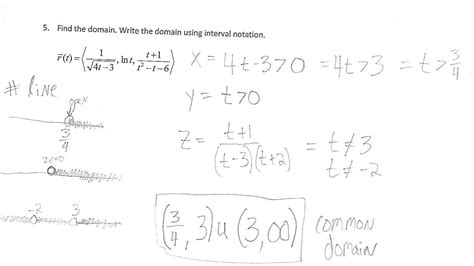 5. Find the domain. Write the domain using interval notation.
r⃗(t) = ⟨1/√(4t−3), ln t, (t+1)/(t²−t−6)⟩
X = 4t-3>0 = 4t>3 = t>3/4
y = t>0
# line
OPEN
3/4
Z = (t+1)/((t-3)(t+2)) = t≠3
t≠-2
ZERO
-2 3
(3/4, 3) u (3, ∞)
common
domain